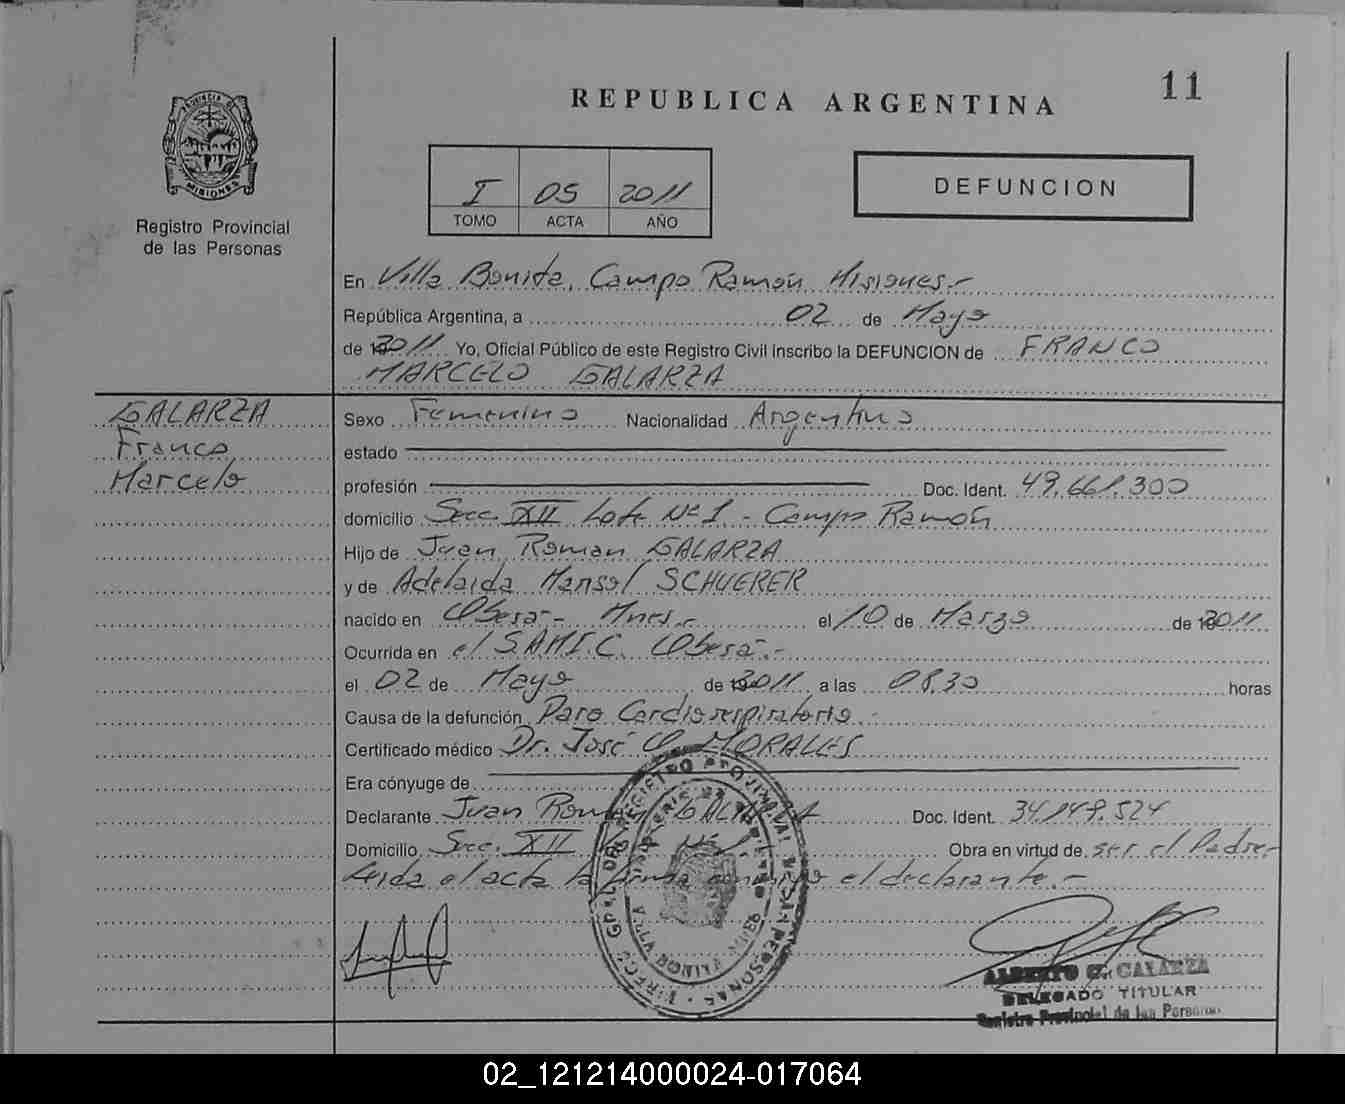 11
REPUBLICA ARGENTINA
PROVINCIA DE
MISIONES
Registro Provincial
de las Personas
I 05 2011
TOMO ACTA AÑO
DEFUNCION
En Villa Bonita, Campo Ramón Misiones.-
República Argentina, a 02 de Mayo
de 2011 Yo, Oficial Público de este Registro Civil inscribo la DEFUNCION de FRANCO
MARCELO GALARZA
GALARZA
Franco
Marcelo
Sexo Femenino Nacionalidad Argentino
estado
profesión Doc. Ident. 49.661.300
domicilio Secc. XII Lote Nº 1 - Campo Ramón
Hijo de Juan Roman GALARZA
y de Adelaida Marisol SCHUERER
nacido en Oberá - Mnes.- el 10 de Marzo de 2011
Ocurrida en el S.A.M.I.C. Oberá.-
el 02 de Mayo de 2011 a las 08.30 horas
Causa de la defunción Paro Cardiorespiratorio.-
Certificado médico Dr. José O MORALES
Era cónyuge de
Declarante Juan Roman GALARZA Doc. Ident. 34.149.524
Domicilio Secc. XII Nº 1 Obra en virtud de ser el Padre.-
Leida el acta la firma conmigo el declarante.-
ALBERTO GALARZA
DELEGADO TITULAR
Registro Provincial de las Personas
02_121214000024-017064